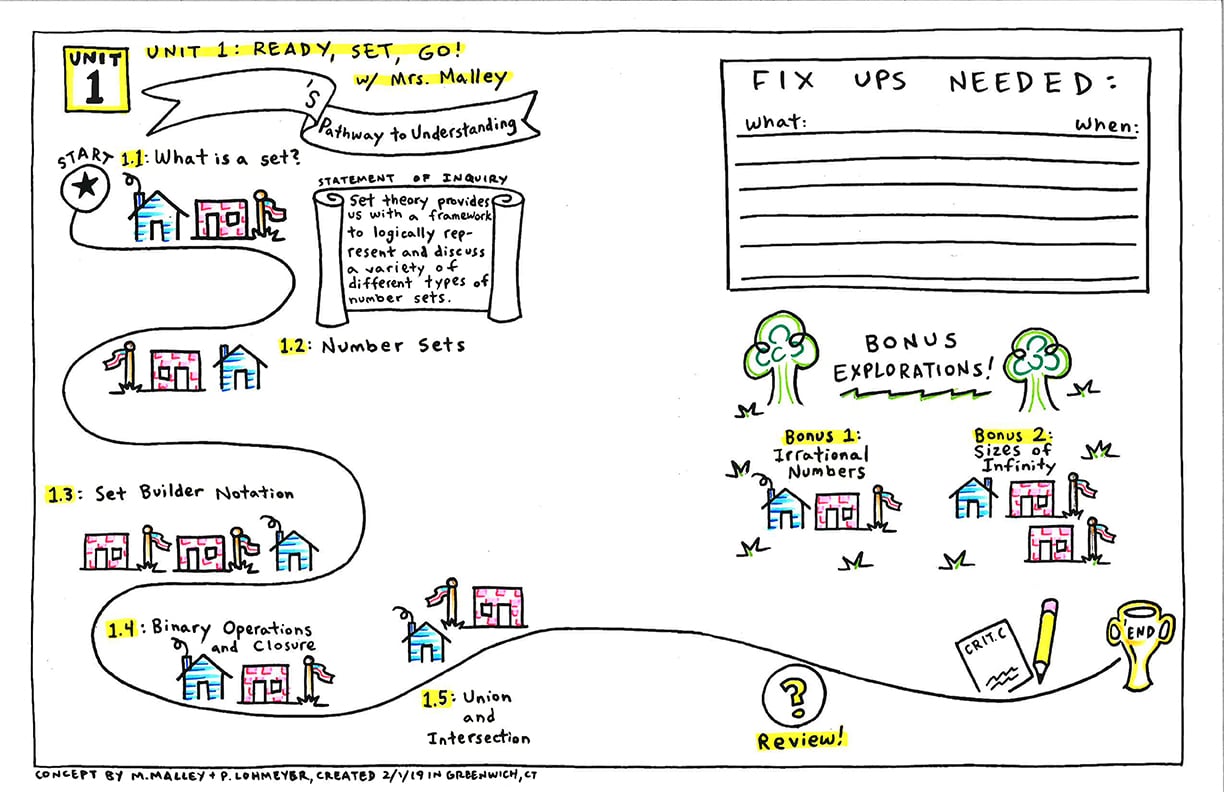 UNIT
1
UNIT 1: READY, SET, GO!
w/ Mrs. Malley
's
Pathway to Understanding
START
1.1: What is a set?
STATEMENT OF INQUIRY
Set theory provides
us with a framework
to logically rep-
resent and discuss
a variety of
different types of
number sets.
1.2: Number Sets
1.3: Set Builder Notation
1.4: Binary Operations
and Closure
1.5: Union
and
Intersection
FIX UPS NEEDED:
What: When:
BONUS
EXPLORATIONS!
Bonus 1:
Irrational
Numbers
Bonus 2:
Sizes of
Infinity
?
Review!
CRIT.C
END
CONCEPT BY M.MALLEY + P. LOHMEYER, CREATED 2/1/19 IN GREENWICH, CT